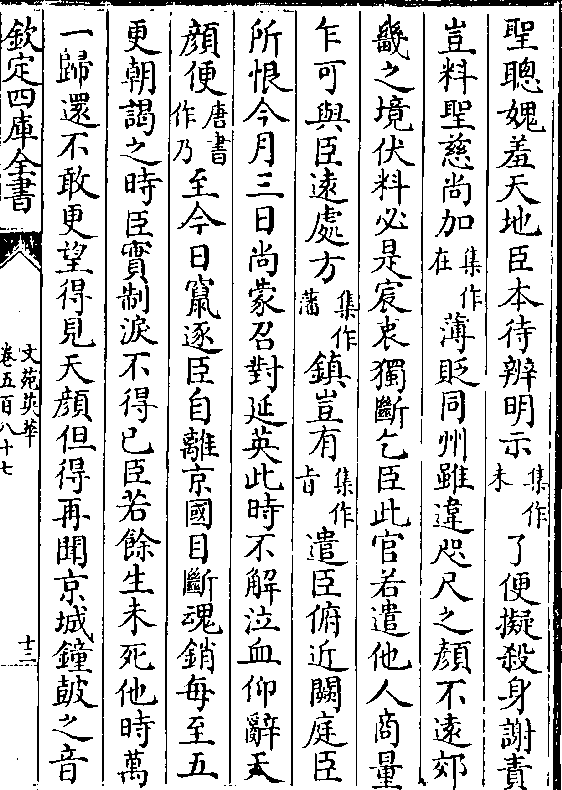 聖聰媿羞天地臣本待辨明示集作未了便擬殺身謝責
豈料聖慈尚加集作在薄貶同州雖違咫尺之顔不逺郊
畿之境伏料必是宸衷獨斷乞臣此官若遣他人商量
乍可與臣逺處方集作藩鎮豈有集作肯遣臣俯近闕庭臣
所恨今月三日尚蒙召對延英此時不解泣血仰辭天
顔便唐書作乃至今日竄逐臣自離京國目斷魂銷每至五
更朝謁之時臣實制淚不得已臣若餘生未死他時萬
一歸還不敢更望得見天顔但得再聞京城鐘鼓之音
欽定四庫全書
文苑英華
卷五百八十七
十三